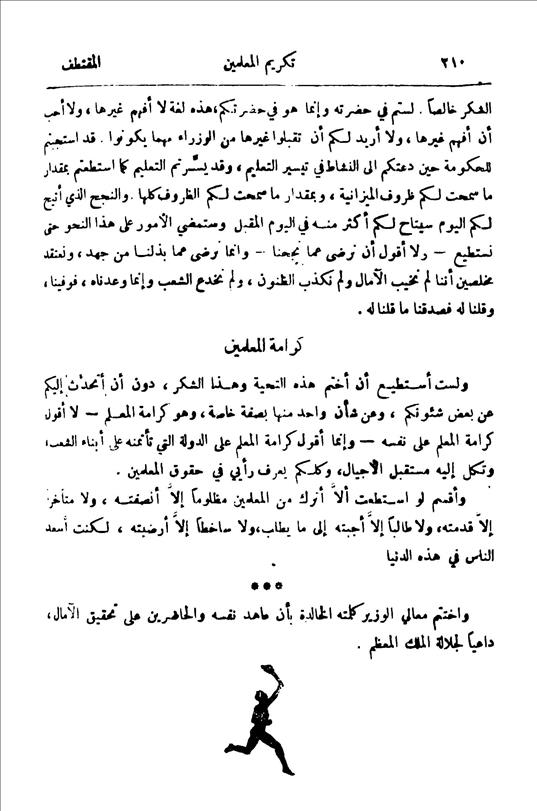 ٢١٠ تكريم المعلمين المقتطف
الشكر خالصاً . لستم في حضرته وإنما هو في حضرتكم، هذه لغة لا أفهم غيرها ، ولا أحب
أن أفهم غيرها ، ولا أريد لكم أن تقبلوا غيرها من الوزراء مهما يكونوا . قد استجبتم
للحكومة حين دعتكم الى النشاط في تيسير التعليم ، وقد يسَّرتم التعليم كما استطعتم بمقدار
ما سمحت لكم ظروف الميزانية ، وبمقدار ما سمحت لكم الظروف كلها . والنجح الذي أتيح
لكم اليوم سيتاح لكم أكثر منه في اليوم المقبل وستمضي الأمور على هذا النحو حتى
نستطيع — ولا أقول أن نرضى عما نجحنا — وانما نرضى عما بذلنا من جهد ، ونعتقد
مخلصين أننا لم نخيب الآمال ولم نكذب الظنون ، ولم نخدع الشعب وإنما وعدناه ، فوفينا ،
وقلنا له فصدقنا ما قلنا له .
كرامة المعلمين
ولست أستطيع أن أختم هذه التحية وهذا الشكر ، دون أن أتحدث إليكم
عن بعض شئونكم ، وعن شأن واحد منها بصفة خاصة ، وهو كرامة المعلم — لا أقول
كرامة المعلم على نفسه — وإنما أقول كرامة المعلم على الدولة التي تأتمنه على أبناء الشعب
وتكل إليه مستقبل الأجيال، وكلكم يعرف رأيي في حقوق المعلمين .
وأقسم لو استطعت ألاَّ أترك من المعلمين مظلوماً إلاَّ أنصفته ، ولا متأخراً
إلاَّ قدمته، ولا طالباً إلاَّ أجبته إلى ما يطلب، ولا ساخطاً إلاَّ أرضيته ، لكنت أسعد
الناس في هذه الدنيا
***
واختتم معالي الوزير كلمته الخالدة بأن عاهد نفسه والحاضرين على تحقيق الآمال ،
داعياً لجلالة الملك المعظم .